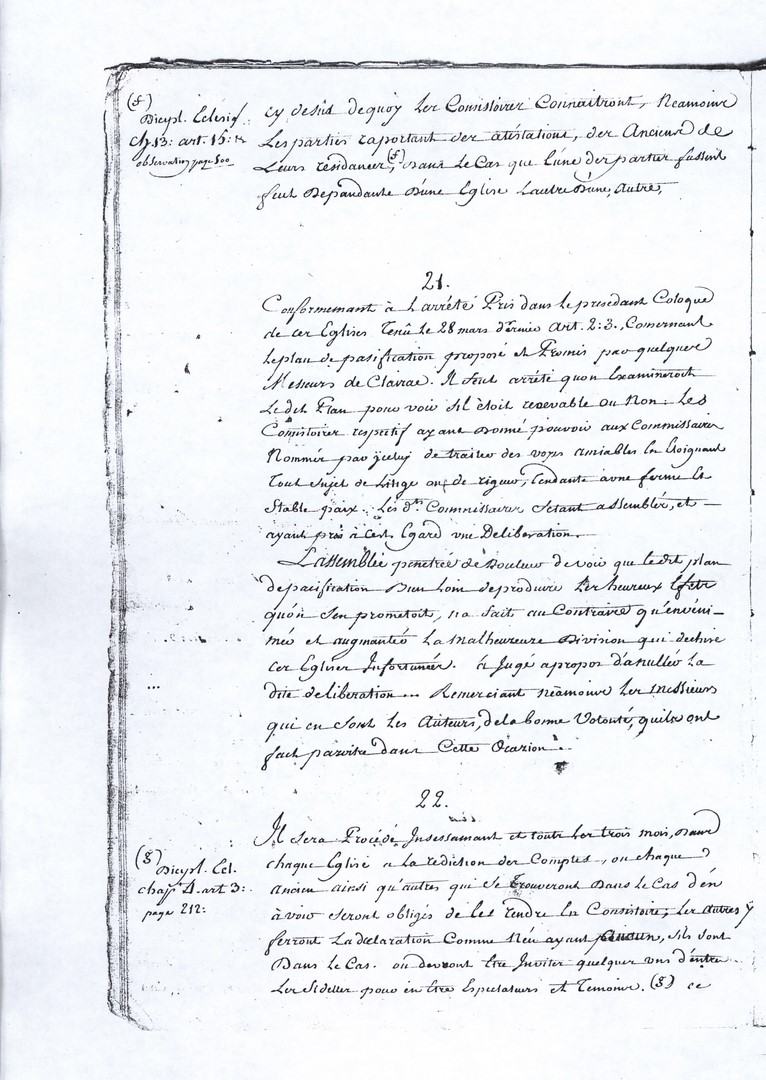 (f)
Dicypl. Eclesif.
ch 13: art. 15: &
observation page 500
cy desus dequoy Les Consistoires Connaitront, Neamoins
Les parties raportant des atestations, des Anciens de
Leurs residances, (f) Dans Le Cas que L'une des parties fussent
feut Depandante D'une Eglise Lautre D'une, Autre,
21.
Conformemant à L'arrété Pris dans le presedant Coloque
de ces Eglises Tenû Le 28 mars d'ernier art. 2: 3. Consernant
Le plan de pasification proposé et Promis par quelques
Messieurs de Clairac. Il feut arrété quon Examineroit
Le dit Plan pour voir sil étoit recevable ou Non: Les
Consistoires respectif ayant Donné pouvoir aux Commissaires
Nommés par jceluy de traiter des voyes amiables En Eloignant
Tout sujet de Litige ou de rigueur, Tendante à une ferme Et
Stable paix. Les dts. Commissaires Sétant assemblés, et
ayant pris à Cest Egard une Deliberation.
L'assemblée penétrée de Douleur de voir que le dit plan
de pacification Bien Loin de produire Les heureux Efets
quon s'en prometoit, na fait au Contraire qu'enveni-
mer et augmanter La malheureuse Division qui dechire
ces Eglises Infortunées. à Jugé apropos d'anuller La
dite deliberation... Remerciant neamoins Les Messieurs
qui en Sont Les Auteurs, de la bonne Volonté, quils ont
fait paroitre dans Cette Ocazion.
22.
Il Sera Procédé Insessamant et toute Les trois mois, Dans
chaque Eglise a La rédiction des Comptes, ou chaque
ancien ainsi qu'autres qui Se trouveront Dans Le Cas d'en
à voir seront obligés de Les rendre En Consistoire; Les autres y
ferront La declaration Comme N'en ayant aucun, sils sont
Dans Le Cas. ou devront Etre Inviter quelques uns d'entre
Les fidelles pour en être Espectateurs et Temoins. (g) ce
(g)
Dicypl. Ecl.
chap. 4. art 3:
page 212: